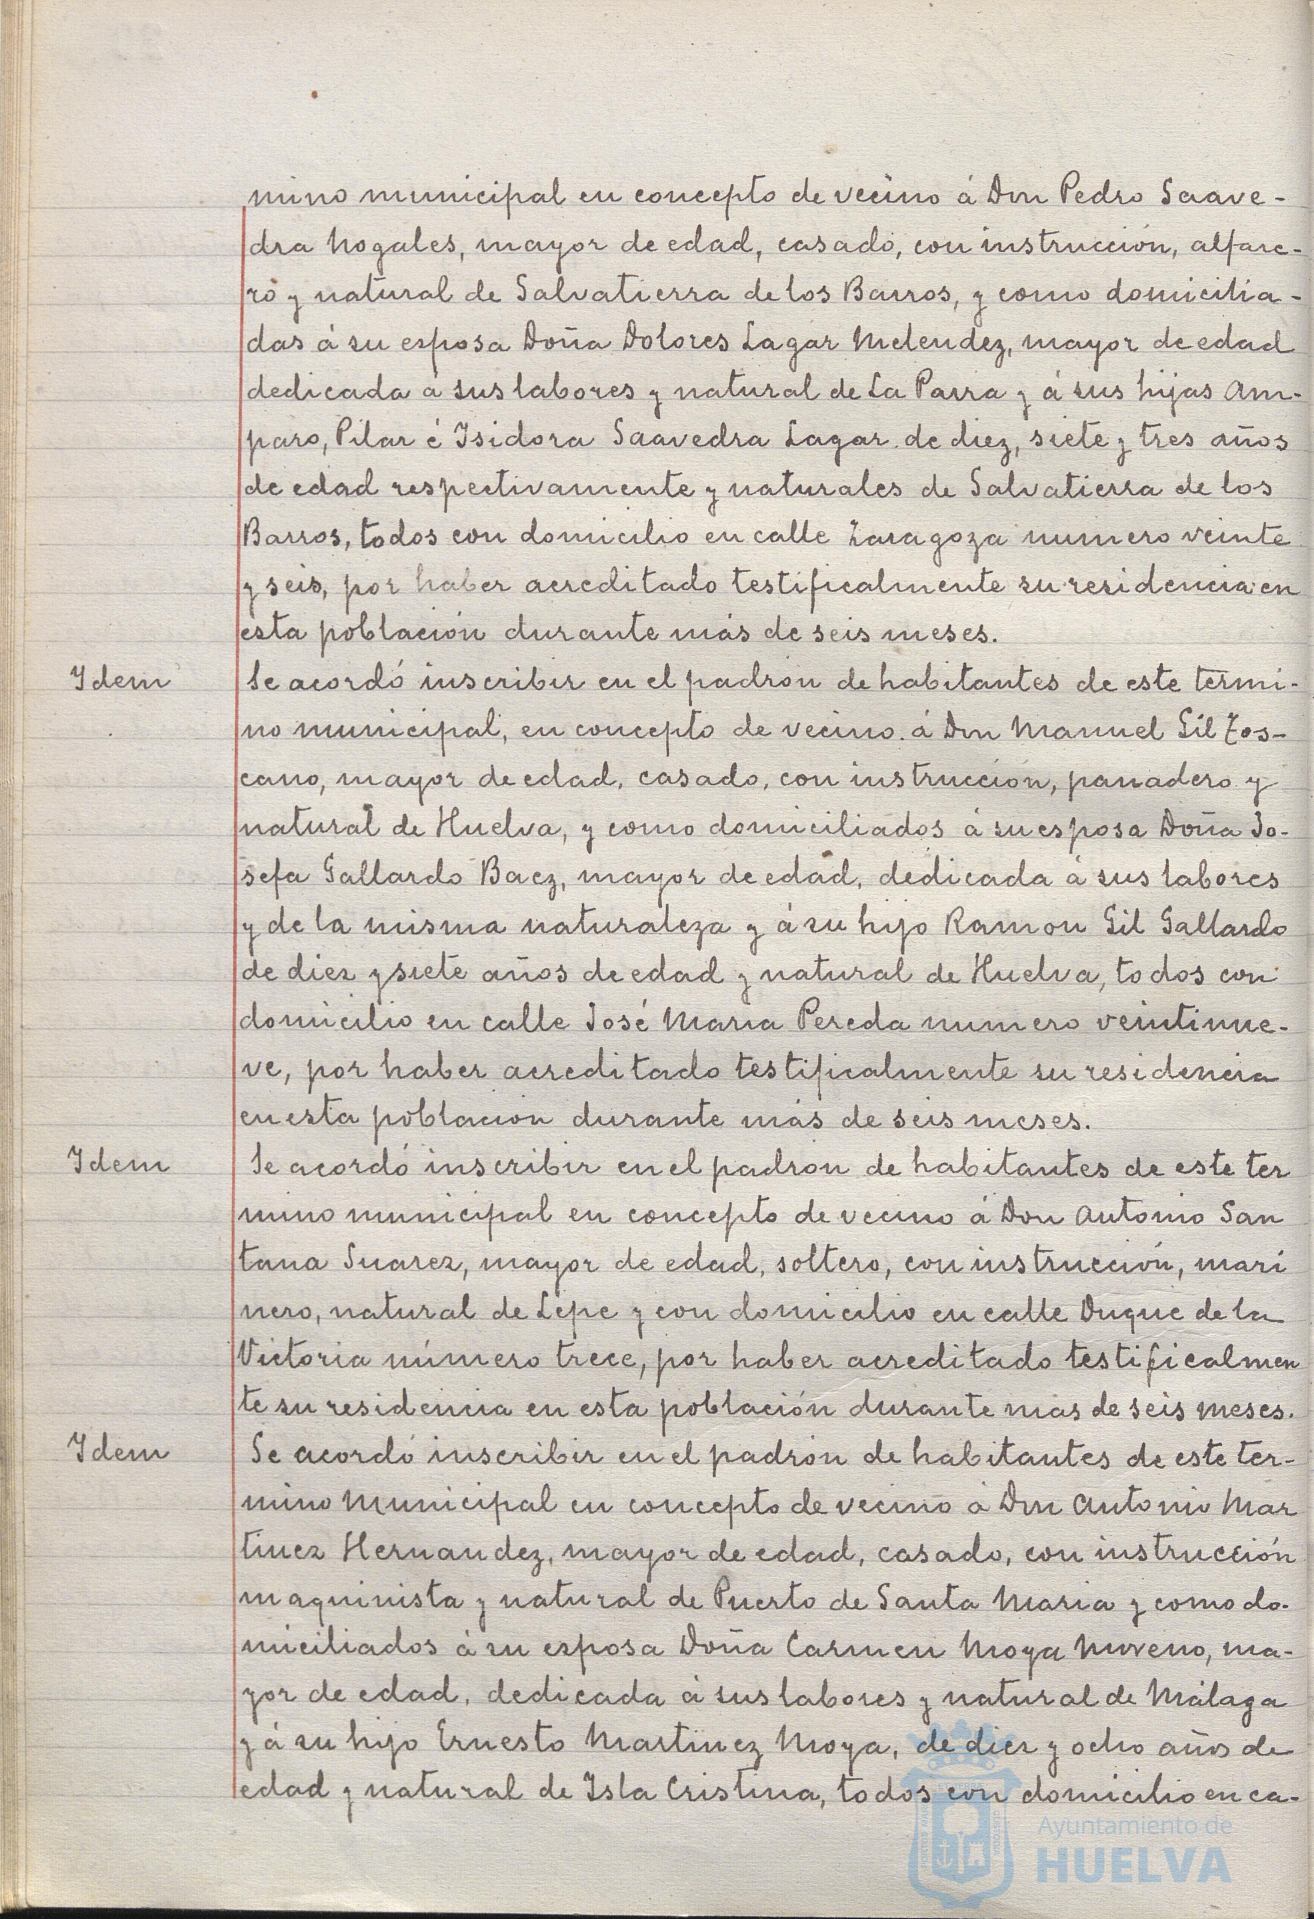 mino municipal en concepto de vecino á Don Pedro Saave-
dra Nogales, mayor de edad, casado, con instrucción, alfare-
ro y natural de Salvatierra de los Barros, y como domicilia-
das á su esposa Doña Dolores Lagar Melendez, mayor de edad
dedicada a sus labores y natural de La Parra y á sus hijas Am-
paro, Pilar é Isidora Saavedra Lagar de diez, siete y tres años
de edad respectivamente y naturales de Salvatierra de los
Barros, todos con domicilio en calle Zaragoza numero veinte
y seis, por haber acreditado testificalmente su residencia en
esta población durante más de seis meses.
Idem
Se acordó inscribir en el padron de habitantes de este termi-
no municipal, en concepto de vecino á Don Manuel Gil Tos-
cano, mayor de edad, casado, con instrucción, panadero y
natural de Huelva, y como domiciliados á su esposa Doña Jo-
sefa Gallardo Baez, mayor de edad, dedicada á sus labores
y de la misma naturaleza y á su hijo Ramon Gil Gallardo
de diez y siete años de edad y natural de Huelva, todos con
domicilio en calle José Maria Pereda numero veintinue-
ve, por haber acreditado testificalmente su residencia
en esta poblacion durante más de seis meses.
Idem
Se acordó inscribir en el padron de habitantes de este ter
mino municipal en concepto de vecino á Don Antonio San
tana Suarez, mayor de edad, soltero, con instrucción, mari
nero, natural de Lepe y con domicilio en calle Duque de la
Victoria número trece, por haber acreditado testificalmen
te su residencia en esta población durante mas de seis meses.
Idem
Se acordó inscribir en el padrón de habitantes de este ter-
mino municipal en concepto de vecino á Don Antonio Mar
tinez Hernandez, mayor de edad, casado, con instrucción
maquinista y natural de Puerto de Santa Maria y como do-
miciliados á su esposa Doña Carmen Moya Moreno, ma-
yor de edad, dedicada á sus labores y natural de Málaga
y á su hijo Ernesto Martinez Moya, de diez y ocho años de
edad y natural de Isla Cristina, todos con domicilio en ca-
Ayuntamiento de
HUELVA